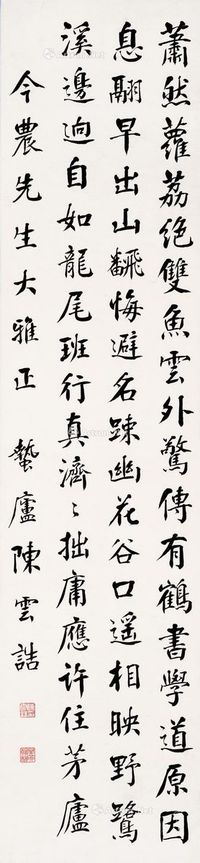 蕭然蘿荔絕雙魚雲外驚傳有鶴書學道原因
息翮早出山翻悔避名踈幽花谷口遥相映野鷺
溪邊逈自如龍尾班行真濟〻拙庸應许住茅廬
今農先生大雅正 蟄廬陳雲誥